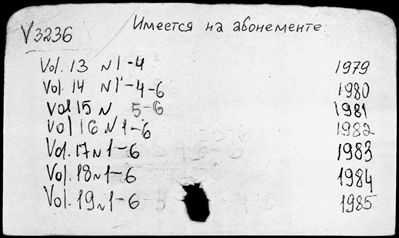 V3236 Имеется на абонементе
Vol. 13 N1-4 1979
Vol. 14 N1-4-6 1980
Vol 15 N 5-6 1981
Vol 16 N1-6 1982
Vol. 17 N1-6 1983
Vol. 18 N1-6 1984
Vol. 19 N1-6 1985